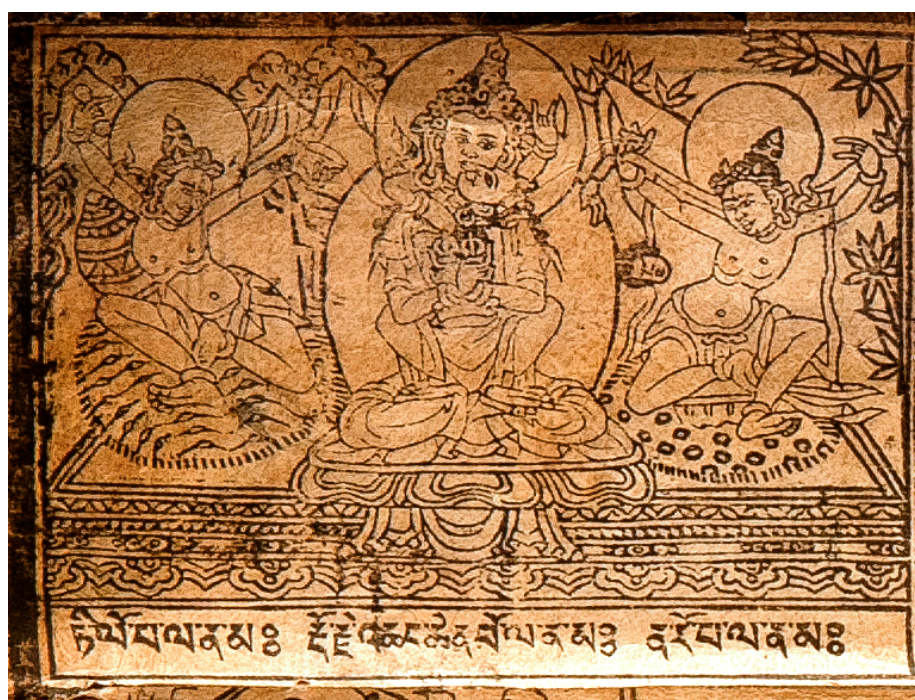 ཏཻ་ལོ་པ་ལ་ན་མཿ རྡོ་རྗེ་འཆང་ཆེན་པོ་ལ་ན་མཿ ན་རོ་པ་ལ་ན་མཿ